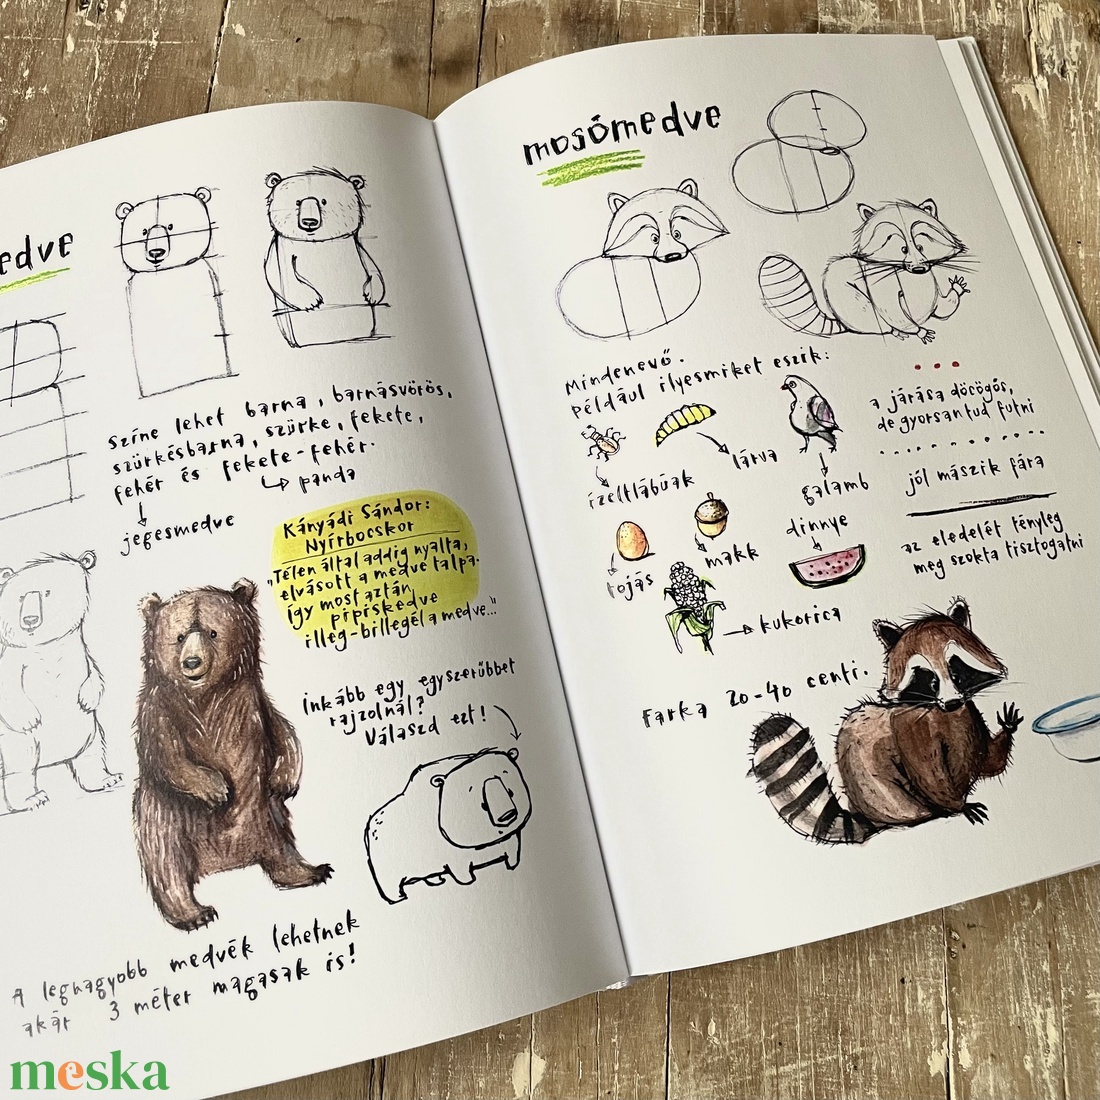 edve
színe lehet barna, barnásvörös,
szürkésbarna, szürke, fekete,
fehér és fekete-fehér.
panda
jegesmedve
Kányádi Sándor:
Nyírbocskor
"Télen által addig nyalta,
elvásott a medve talpa.
Így most aztán
pipiskedve
illeg-billegél a medve..."
Inkább egy egyszerűbbet
rajzolnál?
Válaszd ezt!
A legnagyobb medvék lehetnek
akár 3 méter magasak is!
mosómedve
Mindenevő.
Például ilyesmiket eszik:
ízeltlábúak
lárva
galamb
tojás
makk
dinnye
kukorica
a járása döcögős,
de gyorsan tud futni
jól mászik fára
az eledelét tényleg
meg szokta tisztogatni
Farka 20-40 centi.
meska